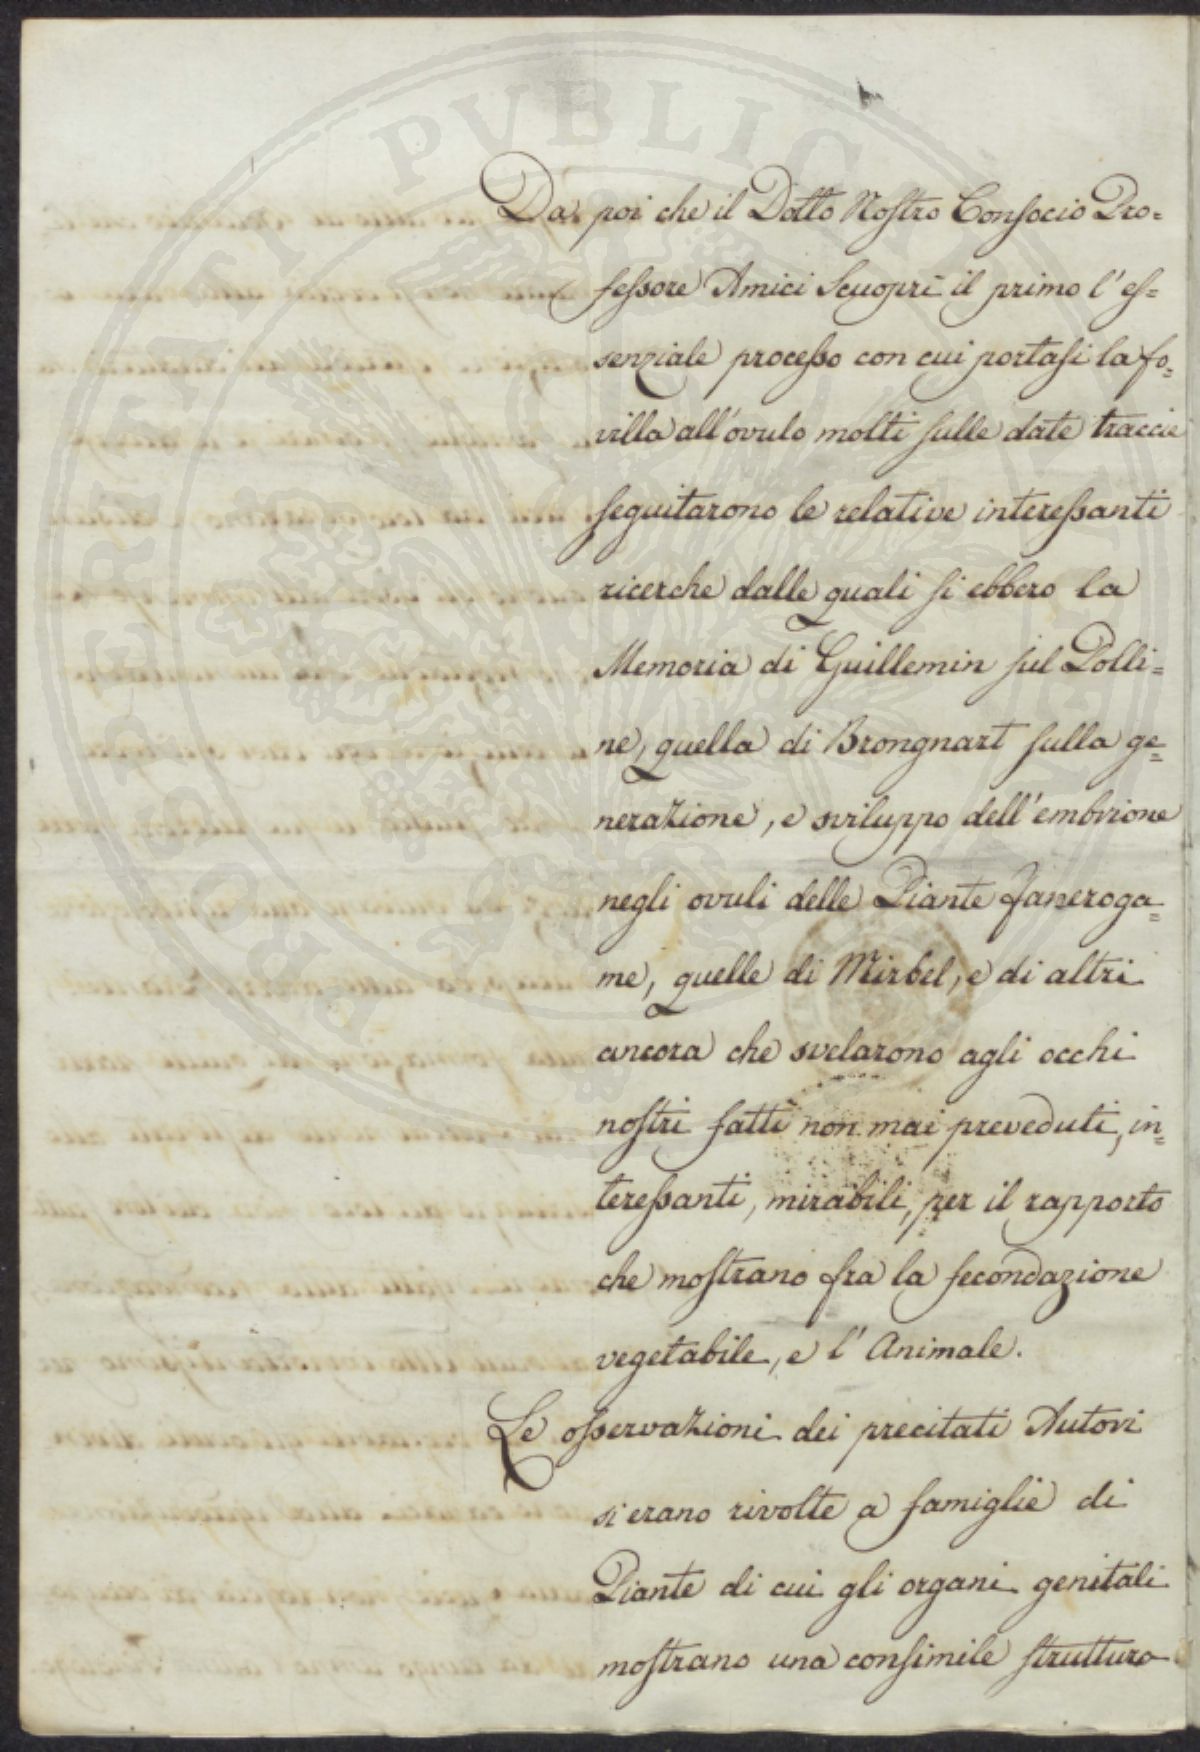 Da poi che il Dotto Nostro Consocio Pro=
fessore Amici scuoprì il primo l'es=
senziale processo con cui portasi la fo=
villa all'ovulo molti sulle date traccie
seguitarono le relative interessanti
ricerche dalle quali si ebbero la
Memoria di Guillemin sul Polli=
ne, quella di Brongnart sulla ge=
nerazione, e sviluppo dell'embrione
negli ovuli delle Piante Faneroga=
me, quelle di Mirbel, e di altri
ancora che svelarono agli occhi
nostri fatti non mai preveduti, in=
teressanti, mirabili, per il rapporto
che mostrano fra la fecondazione
vegetabile, e l'Animale.
Le osservazioni dei precitati Autori
si erano rivolte a famiglie di
Piante di cui gli organi genitali
mostrano una consimile struttura